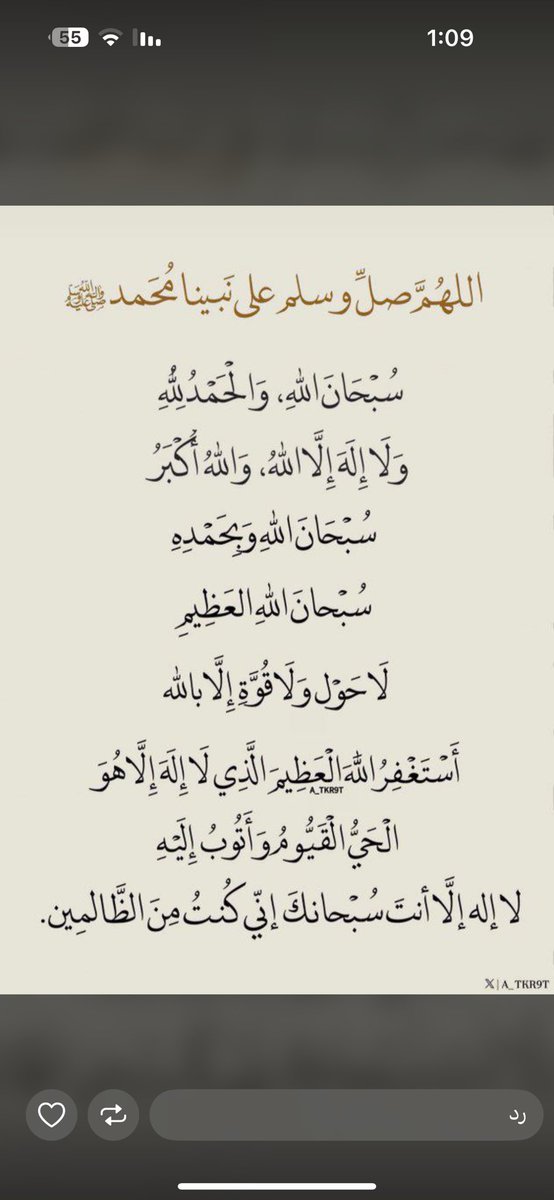 55
1:09
اللهُمَّ صَلِّ وسلم على نَبينا مُحَمد ﷺ
سُبْحَانَ اللهِ، وَالْحَمْدُ لِلَّهِ
وَلَا إِلَهَ إِلَّا اللهُ، وَاللهُ أَكْبَرُ
سُبْحَانَ اللهِ وَبِحَمْدِهِ
سُبْحانَ اللهِ العَظِيمِ
لَا حَوْل وَلَا قُوَّةِ إِلَّا بالله
أَسْتَغْفِرُ اللهَ الْعَظِيمَ الَّذِي لَا إِلَهَ إِلَّا هُوَ
A_TKR9T
الْحَيُّ الْقَيُّومُ وَأَتُوبُ إِلَيْهِ
لا إله إلَّا أنتَ سُبْحانكَ إنّي كُنتُ مِنَ الظَّالمِين.
X | A_TKR9T
رد